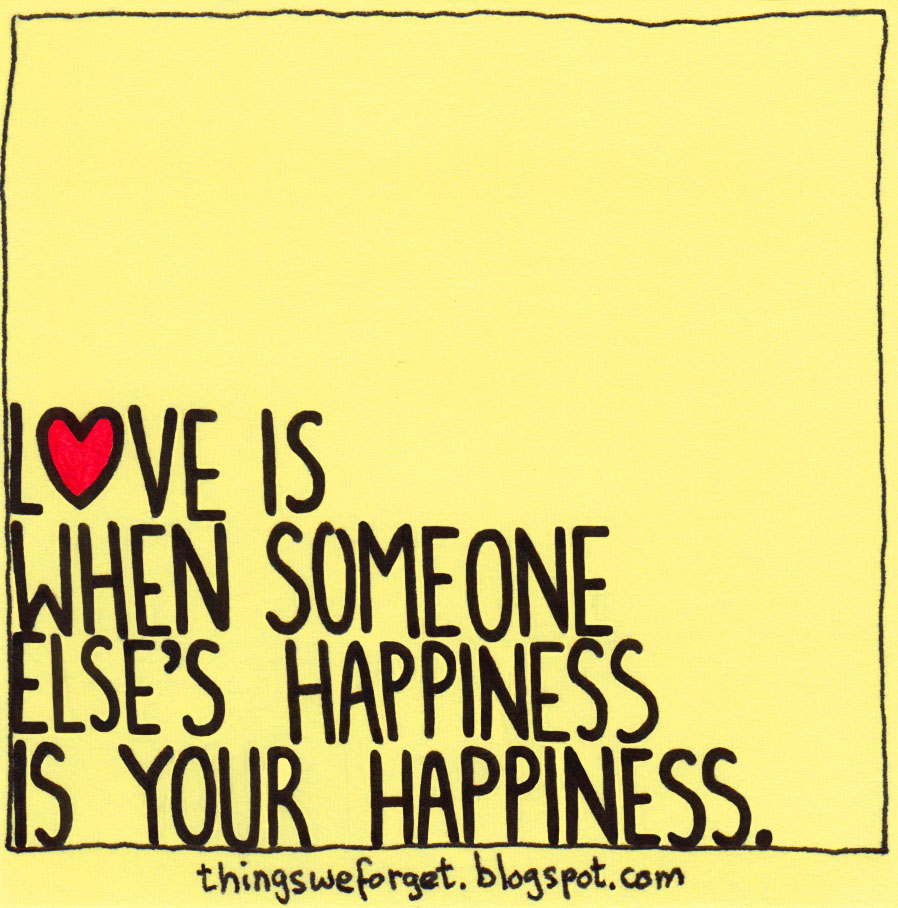 LOVE IS
WHEN SOMEONE
ELSE'S HAPPINESS
IS YOUR HAPPINESS.
thingsweforget.blogspot.com